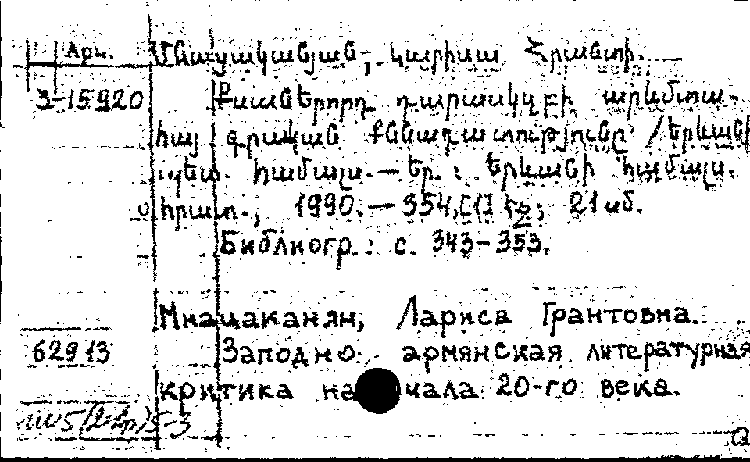 Арм.
Մնացականյան, Լարիսա Հրանտի.
3-15920
Քսաներորդ դարասկզբի արևմտա-
հայ գրական քննադատությունը / Երևանի
պետ. համալս. — Եր. : Երևանի համալս.
հրատ., 1990. — 354,[1] էջ; 21 սմ.
Библиогр.: с. 343-353.
Мнацаканян, Лариса Грантовна.
62913
Западно-армянская литературная
критика начала 20-го века.